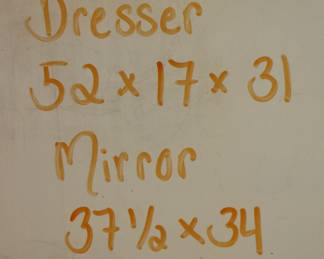 Dresser
52 x 17 x 31
Mirror
37 1/2 x 34